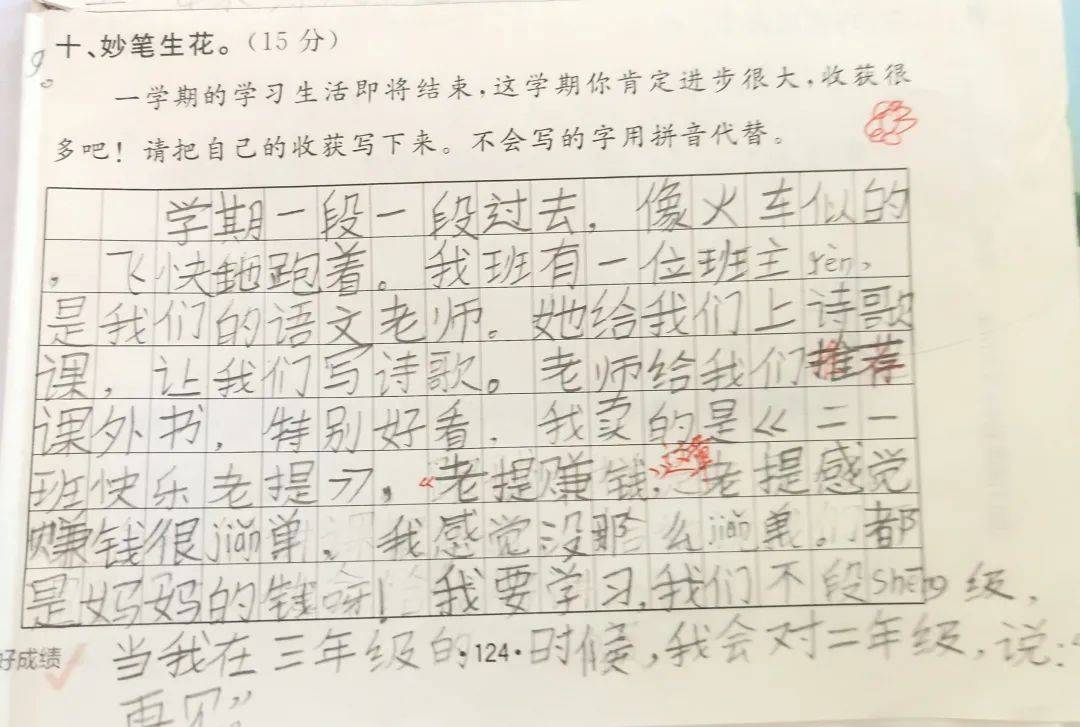 十、妙笔生花。(15 分)
一学期的学习生活即将结束,这学期你肯定进步很大,收获很
多吧! 请把自己的收获写下来。不会写的字用拼音代替。
学期一段一段过去,像火车似的
,飞快地跑着。我班有一位班主rèn,
是我们的语文老师。她给我们上诗歌
课,让我们写诗歌。老师给我们推荐
课外书,特别好看。我卖的是《二一
班快乐老提》,《老提赚钱》这章,老提感觉
赚钱很jiǎn单。我感觉没那么jiǎn单。都
是妈妈的钱呀!我要学习,我们不段shēng级,
当我在三年级的时候,我会对二年级,说:“
再见”
好成绩
·124·